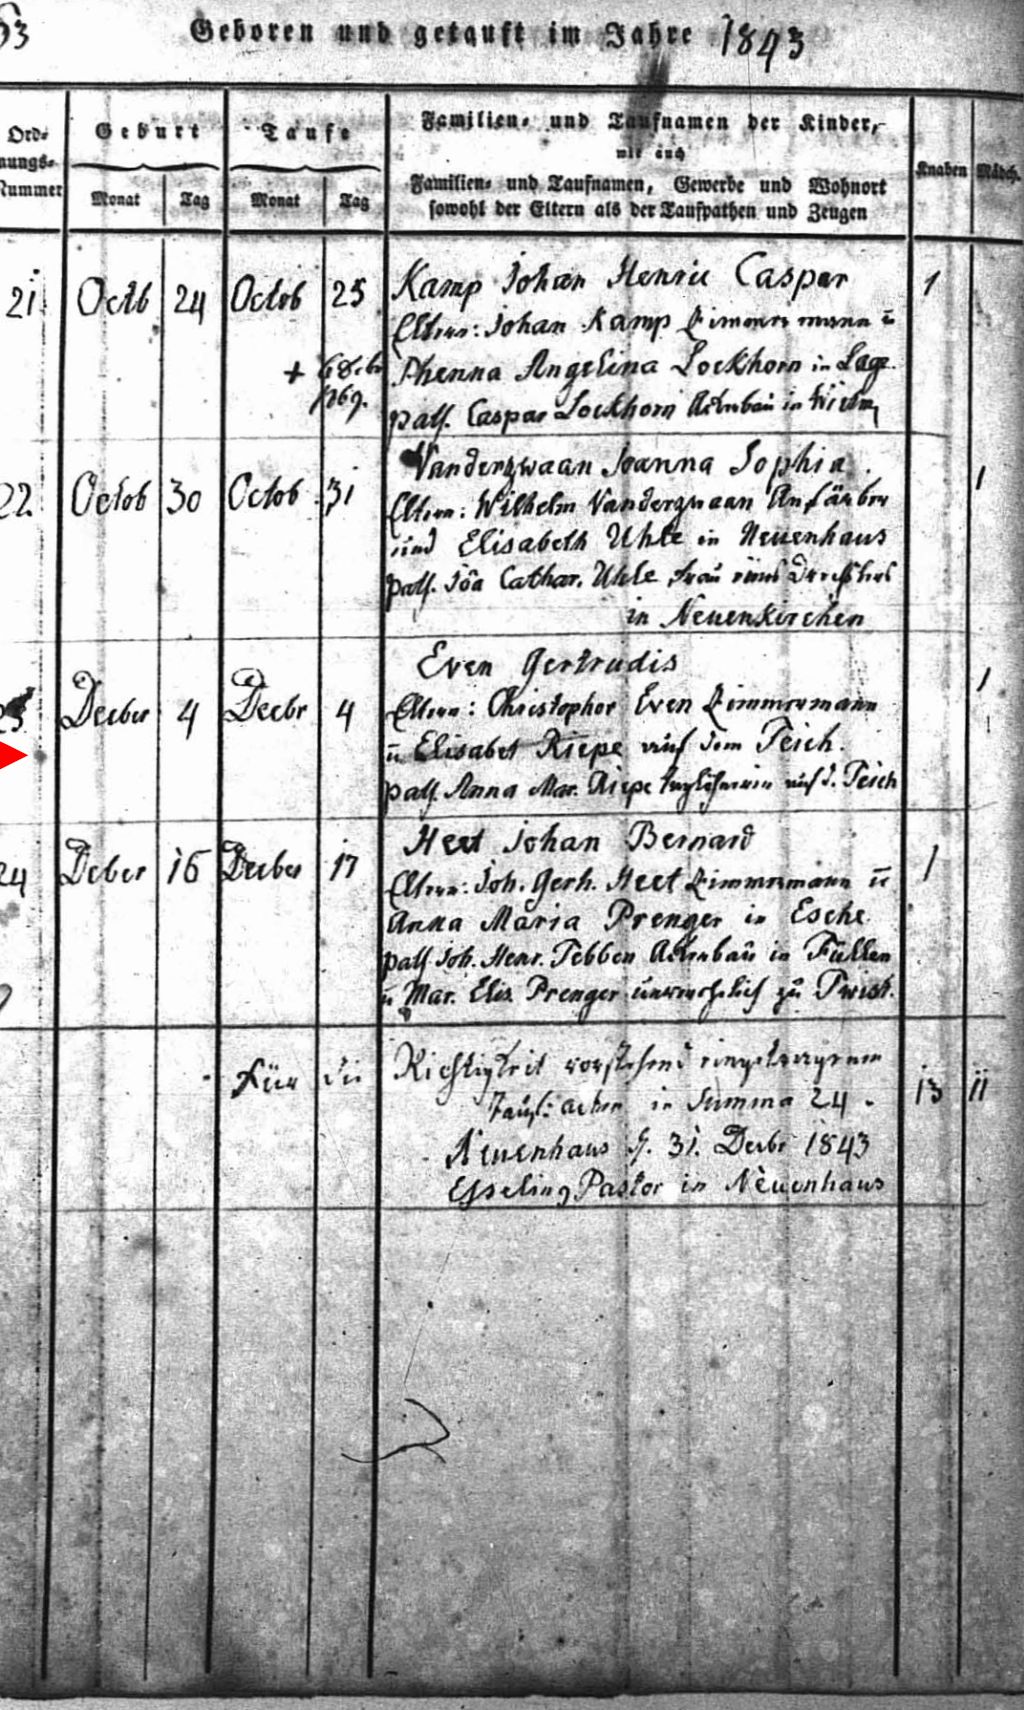 53
Geboren und getauft im Jahre 1843
Ord- nungs- Nummer
Geburt
Taufe
Monat Tag Monat Tag
Familien- und Taufnamen der Kinder,
wie auch
Familien- und Taufnamen, Gewerbe und Wohnort
sowohl der Eltern als der Taufpathen und Zeugen
Knaben Mädch.
21. Octb 24 Octob 25 Kamp Johan Henric Caspar 1
Eltern: Johan Kamp Zimmermann ū
Phenna Angelina Lockhorn in Lage
path. Caspar Lockhorn Ackerbau in
+ 6
1869.
22 Octob 30 Octob 31 Vanderzwaan Joanna Sophia. 1
Eltern: Wilhelm Vanderzwaan Anfärber
und Elisabeth Uhle in Neuenhaus
path. Joa Cathar. Uhle frau eines
in Neuenkirchen
23 Decber 4 Decbr 4 Even Gertrudis 1
Eltern: Christopher Even Zimmermann
ū Elisabet Riepe auf dem Teich.
path. Anna Mar. Riepe auf d. Teich
24 Dcber 16 Decber 17 Heet Johan Bernard 1
Eltern: Joh. Gerh. Heet Zimmermann ū
Anna Maria Prenger in Esche
path Joh. Henr. Tebben Ackerbau in Füllen
ū Mar. Elis. Prenger unverehelich zu Twist.
Für die Richtigkeit vorstehend eingetragenen
Taufacten in Summa 24. 13 11
Neuenhaus d. 31. Decbr 1843
Esseling Pastor in Neuenhaus